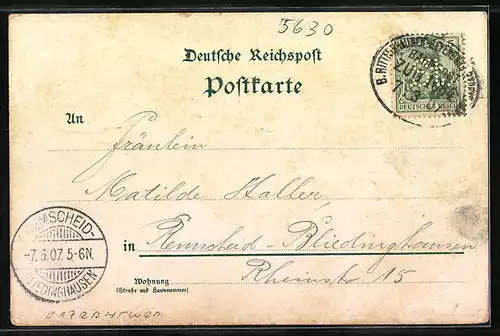 5630
Deutsche Reichspost
Postkarte
DEUTSCHES REICH
An
Fräulein
Matilde Haller,
in Remscheid-Bliedinghausen
Wohnung
(Straße und Hausnummer)
Rheinstr 15
REMSCHEID-
-7.5.07.5-6N.
BLIEDINGHAUSEN